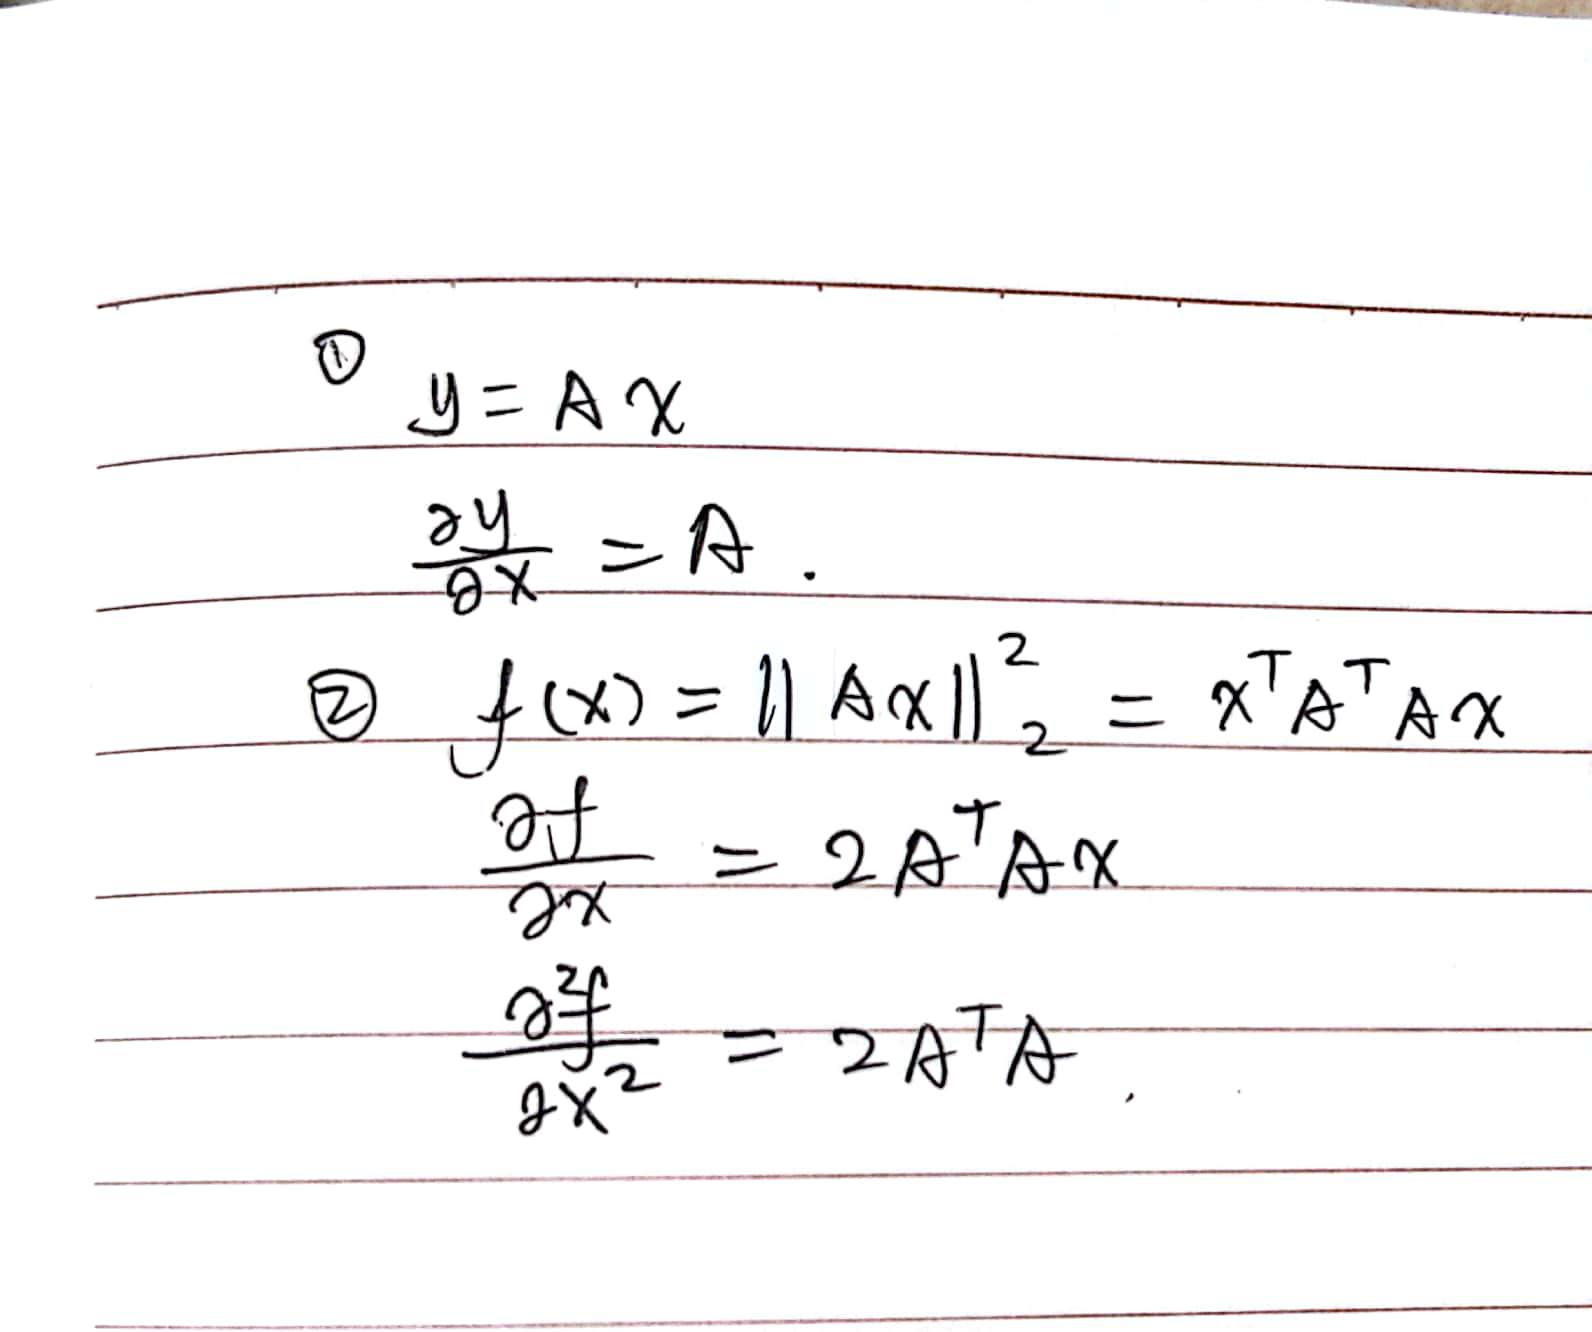 ① y = A x
∂y/∂x = A .
② f(x) = ||Ax||²₂ = xᵀAᵀAx
∂f/∂x = 2AᵀAx
∂²f/∂x² = 2AᵀA ,